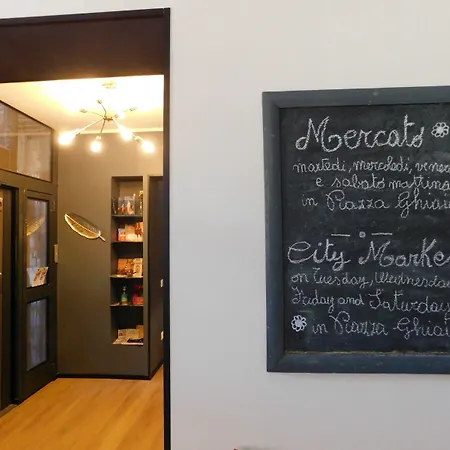 Mercato
martedì, mercoledì, vener
e sabato mattina
in Piazza Ghiaia
City Marke
on Tuesday, Wednesday
Friday and Saturday
in Piazza Ghiai